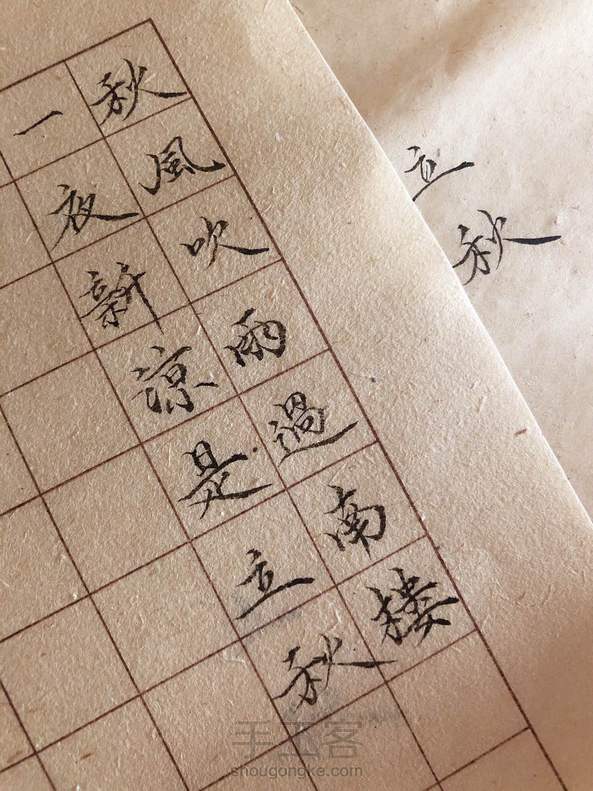 秋風吹雨過南楼
一夜新涼是立秋
立秋
手工客
shougongke.com